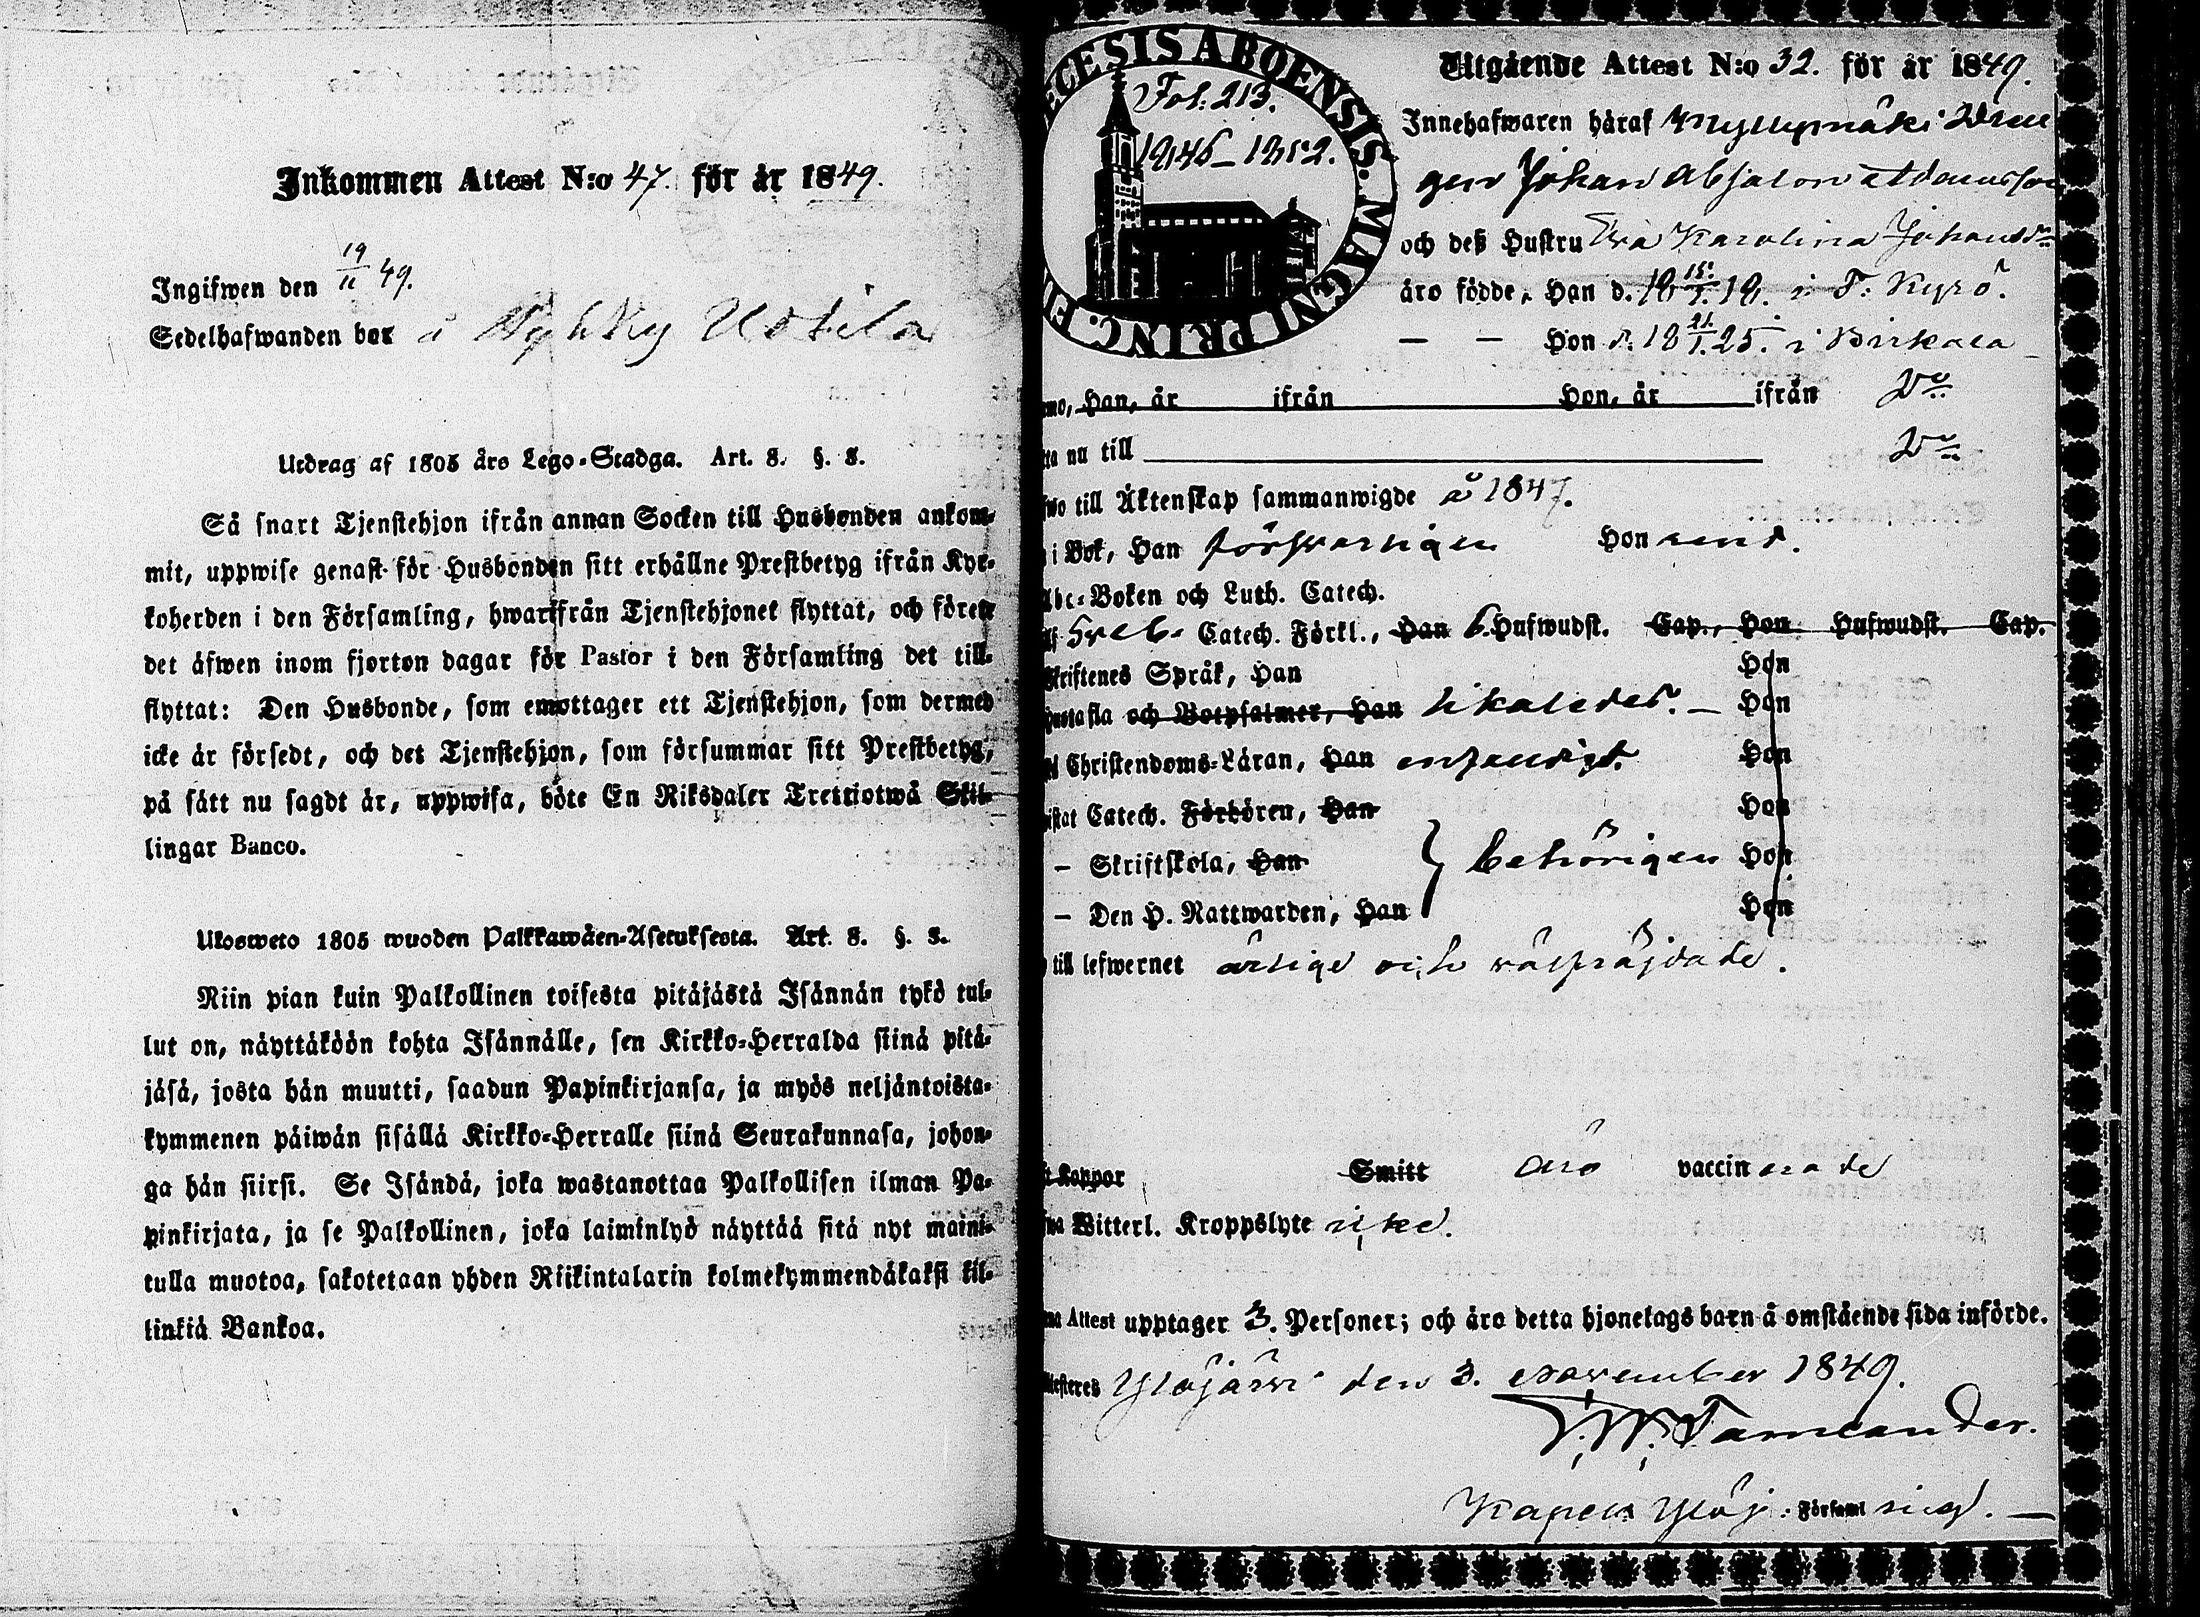 Inkommen Attest N:o 47. för år 1849.
Ingifwen den 19/11 49.
Sedelhafwanden bor å Kyhky Uotila
Utdrag af 1805 års Lego-Stadga. Art. 8. §. 8.
Så snart Tjenstehjon ifrån annan Socken till Husbonden ankom-
mit, uppwise genast för Husbonden sitt erhållne Prestbetyg ifrån Kyr-
koherden i den Församling, hwarifrån Tjenstehjonet flyttat, och förete
det äfwen inom fjorton dagar för Pastor i den Församling det till-
flyttat: Den Husbonde, som emottager ett Tjenstehjon, som dermed
icke är försedt, och det Tjenstehjon, som försummar sitt Prestbetyg,
på sätt nu sagdt är, uppwisa, böte En Riksdaler Trettiotwå Skil-
lingar Banco.
Ulosweto 1805 wuoden Palkkawäen-Asetuksesta. Art. 8. §. 8.
Niin pian kuin Palkollinen toisesta pitäjästä Isännän tykö tul-
lut on, näyttäköön kohta Isännälle, sen Kirkko-Herralda siinä pitä-
jäsä, josta hän muutti, saadun Papinkirjansa, ja myös neljäntoista-
kymmenen päiwän sisällä Kirkko-Herralle siinä Seurakunnasa, johon-
ga hän siirsi. Se Isändä, joka wastanottaa Palkollisen ilman Pa-
pinkirjata, ja se Palkollinen, joka laiminlyö näyttää sitä nyt maini-
tulla muotoa, sakotetaan yhden Riikintalarin kolmekymmendäkaksi kil-
linkiä Bankoa.
ECESIS ABOENSIS. MAGNI PRINC.
Fol. 213.
1846–1852.
Utgående Attest N:o 32. för år 1849.
Innehafwaren häraf Myllymäki Dren
gen Johan Absalon Adamsson
och deß Hustru Eva Karolina Johansdr
äro födde, Han d. 18 15/1. 18. i T. Kyrö.
— — Hon d. 18 21/1. 25. i Birkala
Han, är ifrån Hon, är ifrån Do
nu till Do
till Äktenskap sammanwigde å 1847.
i Bok, Han försvarligen Hon
Abc-Boken och Luth. Catech.
Sveb. Catech. Förkl., Han 6. Hufwudst. Cap., Hon Hufwudst. Cap.
Skriftenes Språk, Han Hon
Hustafla och Botpsalmer, Han likaledes. — Hon
Christendoms-Läran, Han enfaldigt. Hon
Catech. Förhören, Han Hon
— Skriftskola, Han behörigen Hon
— Den H. Nattwarden, Han Hon
till lefwernet ärlige och välfräjdade.
Koppor Smitt äro vaccinerade
Witterl. Kroppslyte icke.
Attest upptager 3. Personer; och äro detta hjonelags barn å omstående sida införde.
Ylöjärvi den 3. November 1849.
Kapells Ylöj. Församling. —